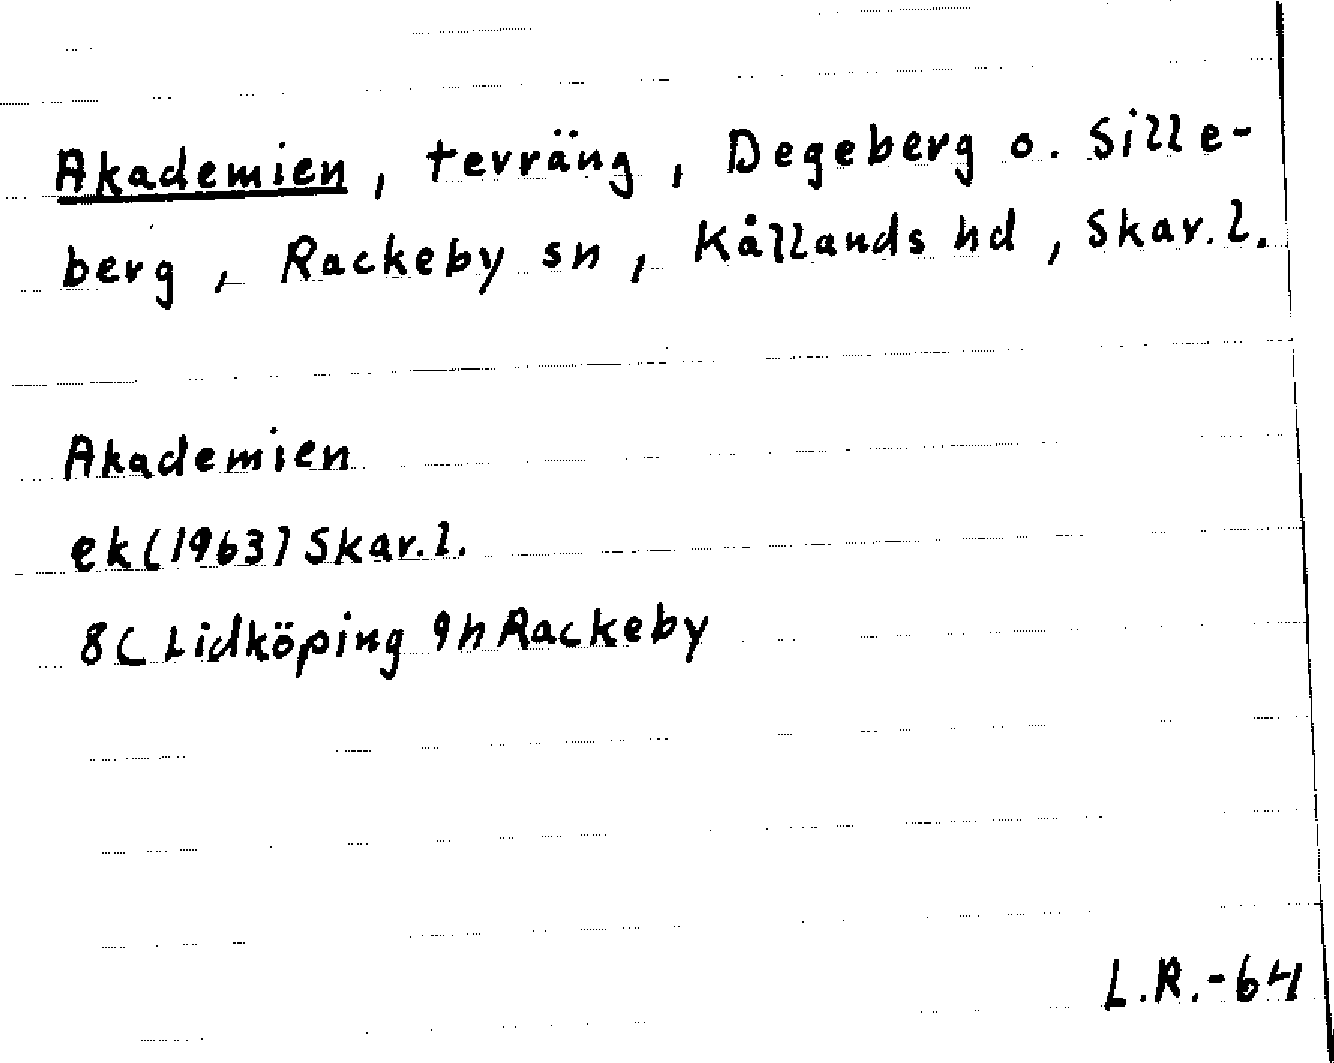 Akademien, terräng, Degeberg o. Sille-
berg, Rackeby sn, Kållands hd, Skar.l.
Akademien
ek(1963) Skar.l.
8C Lidköping 9h Rackeby
L.R.-64